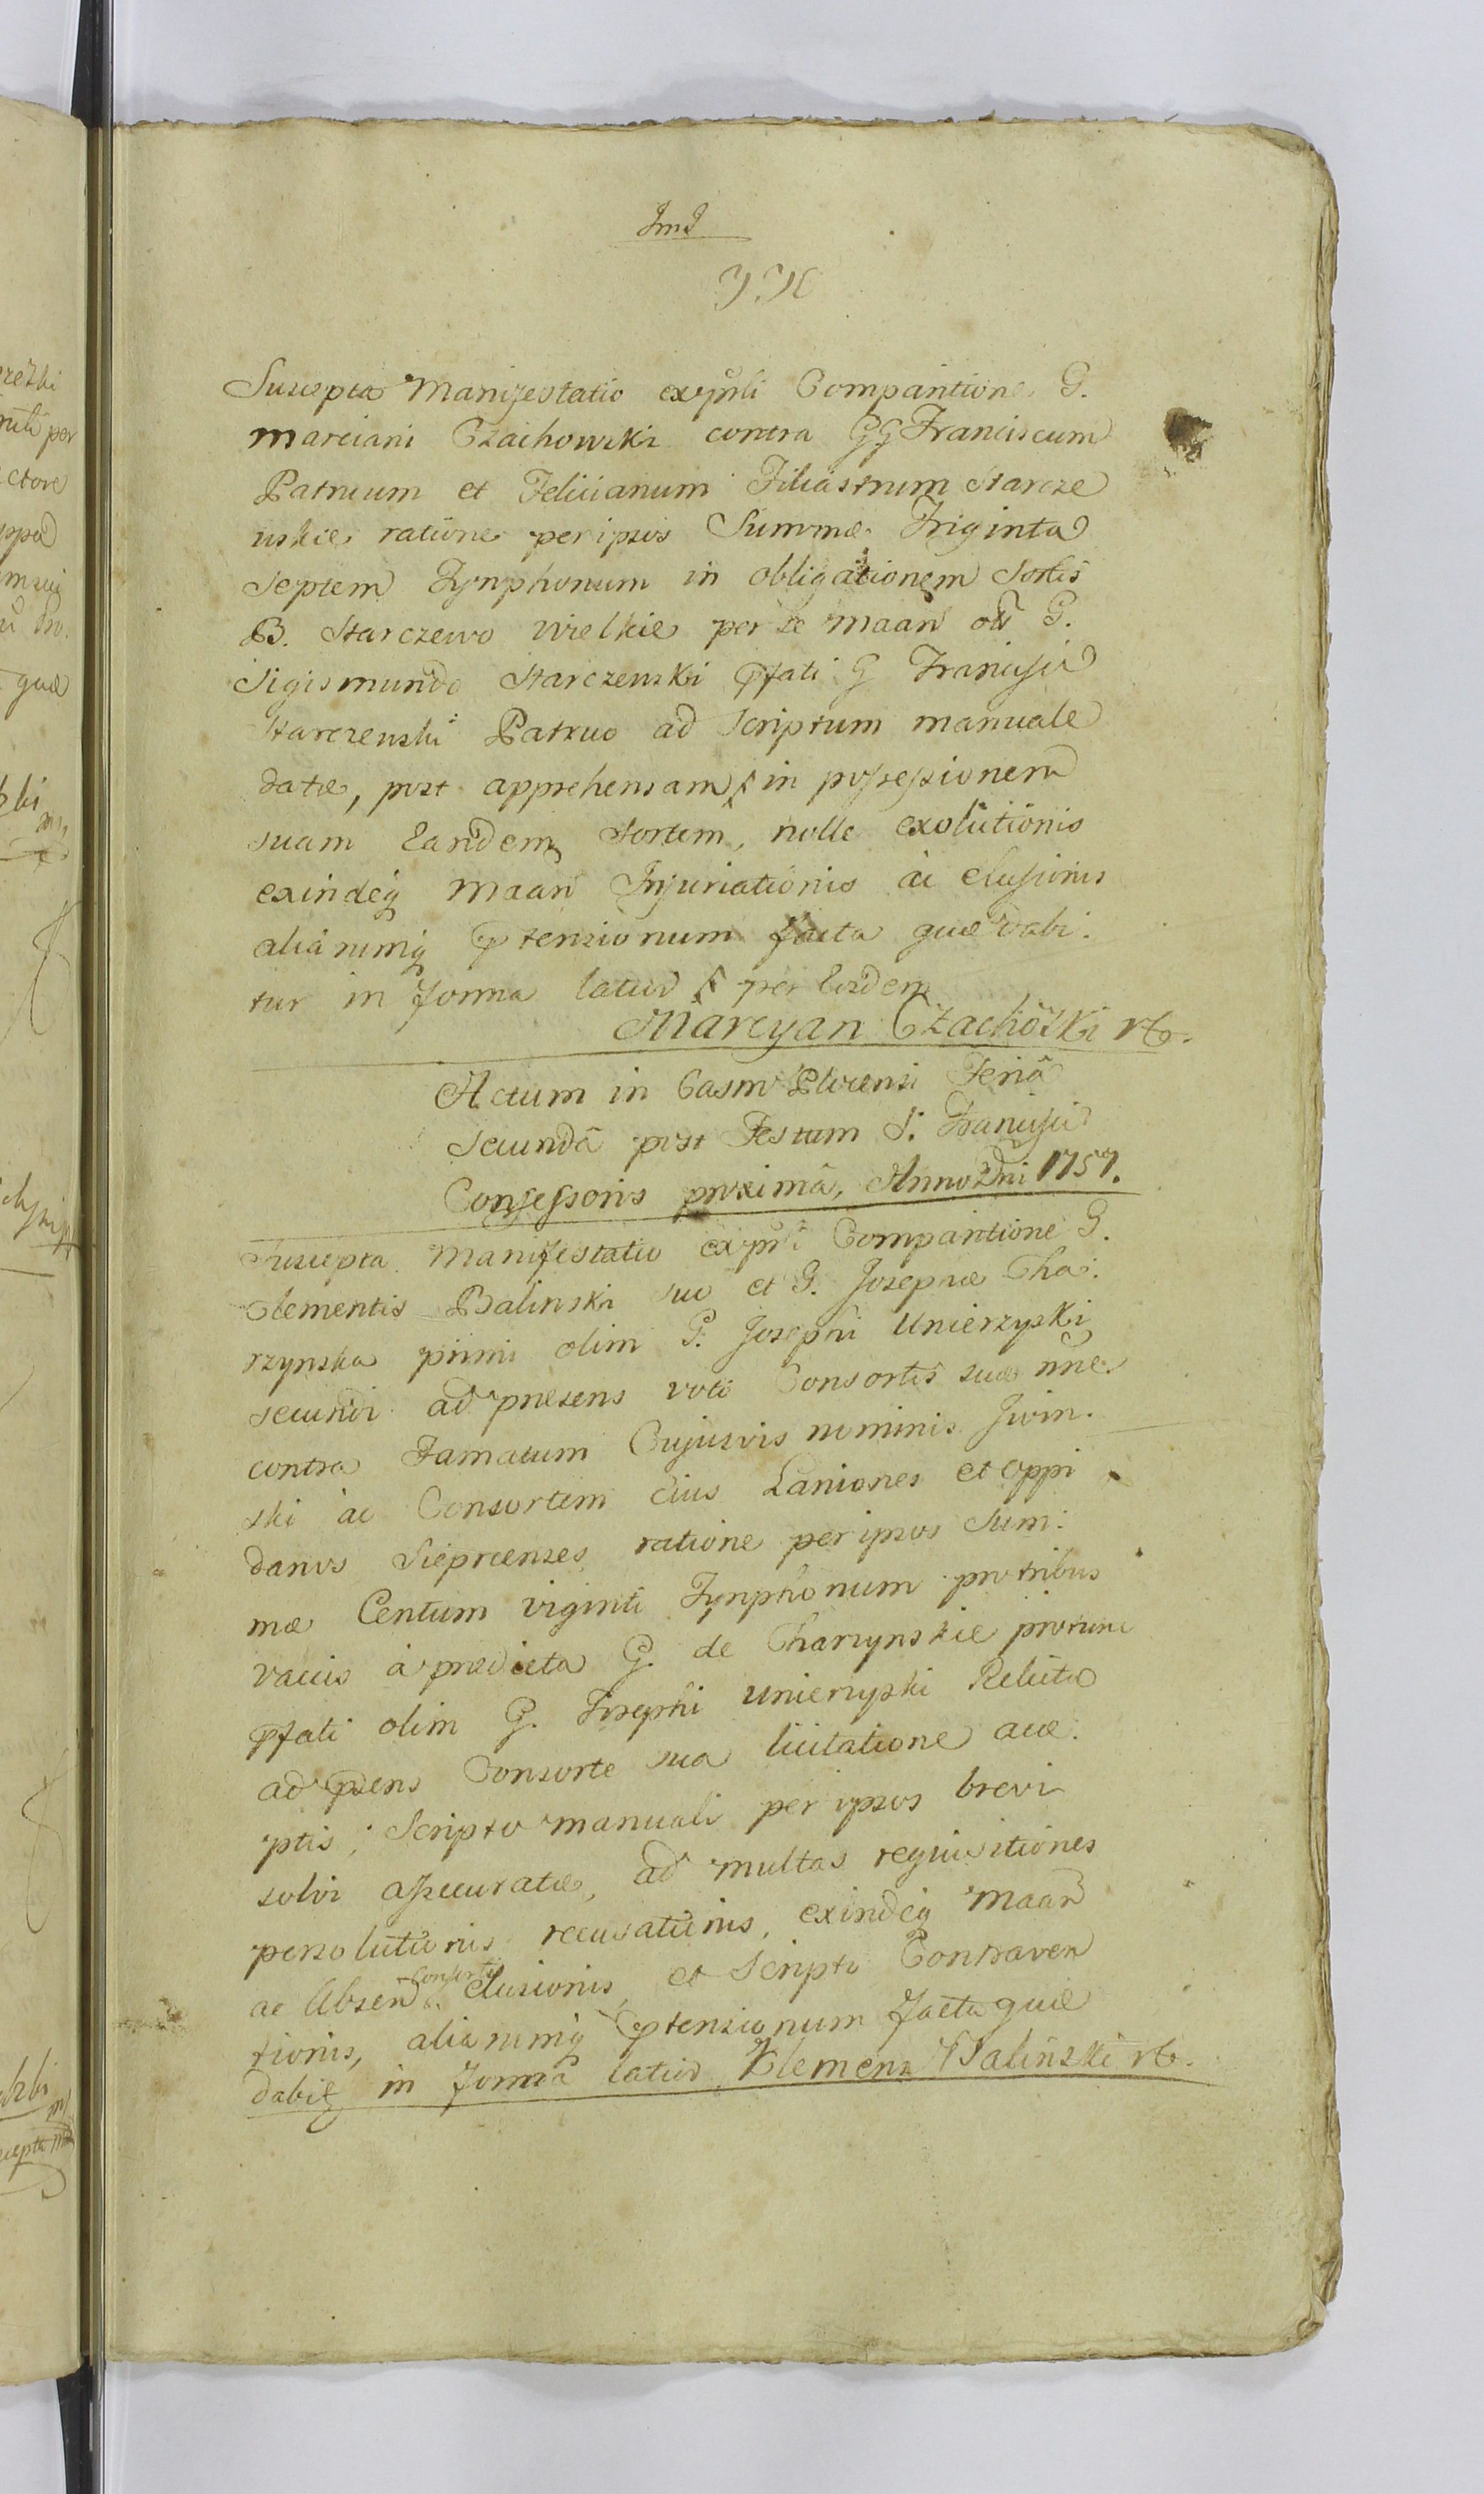 Suscepta Manifestatio ex prnli Comparitione G.
Marciani Czachowski contra GG Franciscum
Patruum et Felicianum Filiastrum Starcze
wskie ratione per ipsos Summæ Triginta
Septem Tynphonum in obligationem Sortis
B. Starczewo Wielkie per se Maan olī G.
Sigismundo Starczewski pfati G Francisci
Starczewski Patruo ad Scriptum manuale
datæ, post apprehensam in possessionem
suam Eandem Sortem, nolle exolutionis
exindeq Maan Injuriationis ac elusionis
aliarumq ptensionum facta quæ dabi.
tur in forma latius per Eosdem
Marcyan Czachôski
Actum in Castro Plocensi Feriâ
Secundâ post Festum S. Francisci
Confessoris proximâ, Anno Dni 1757.
Suscepta Manifestatio ex prnli Comparitione G.
Clementis Balinski suo et G. Josephæ Cha:
rzynska primi olim G. Josephi Unierzyski
secundi ad præsens voti Consortis suæ nne
contra Famatum Cujusvis nominis Jwin.
ski ac Consortem Eius Laniones et oppi
danos Sieprcenses ratione per ipsos Sum:
mæ Centum viginti Tynphonum pro tribus
vaccis a prædicta G. de Charzynskie protunc
pfati olim G. Josephi Unierzyski Relicta
ad præns Consorte sua licitatione acce:
ptis, Scripto manuali per ipsos brevi
solvi assecuratæ, ad multas requisitiones
persolutionis recusationis, exindeq Maan
ac Absen Consortis elusionis, et Scripti Contraven
tionis, aliarumq ptensionum facta quæ
dabit in forma latius Klemens Balinski